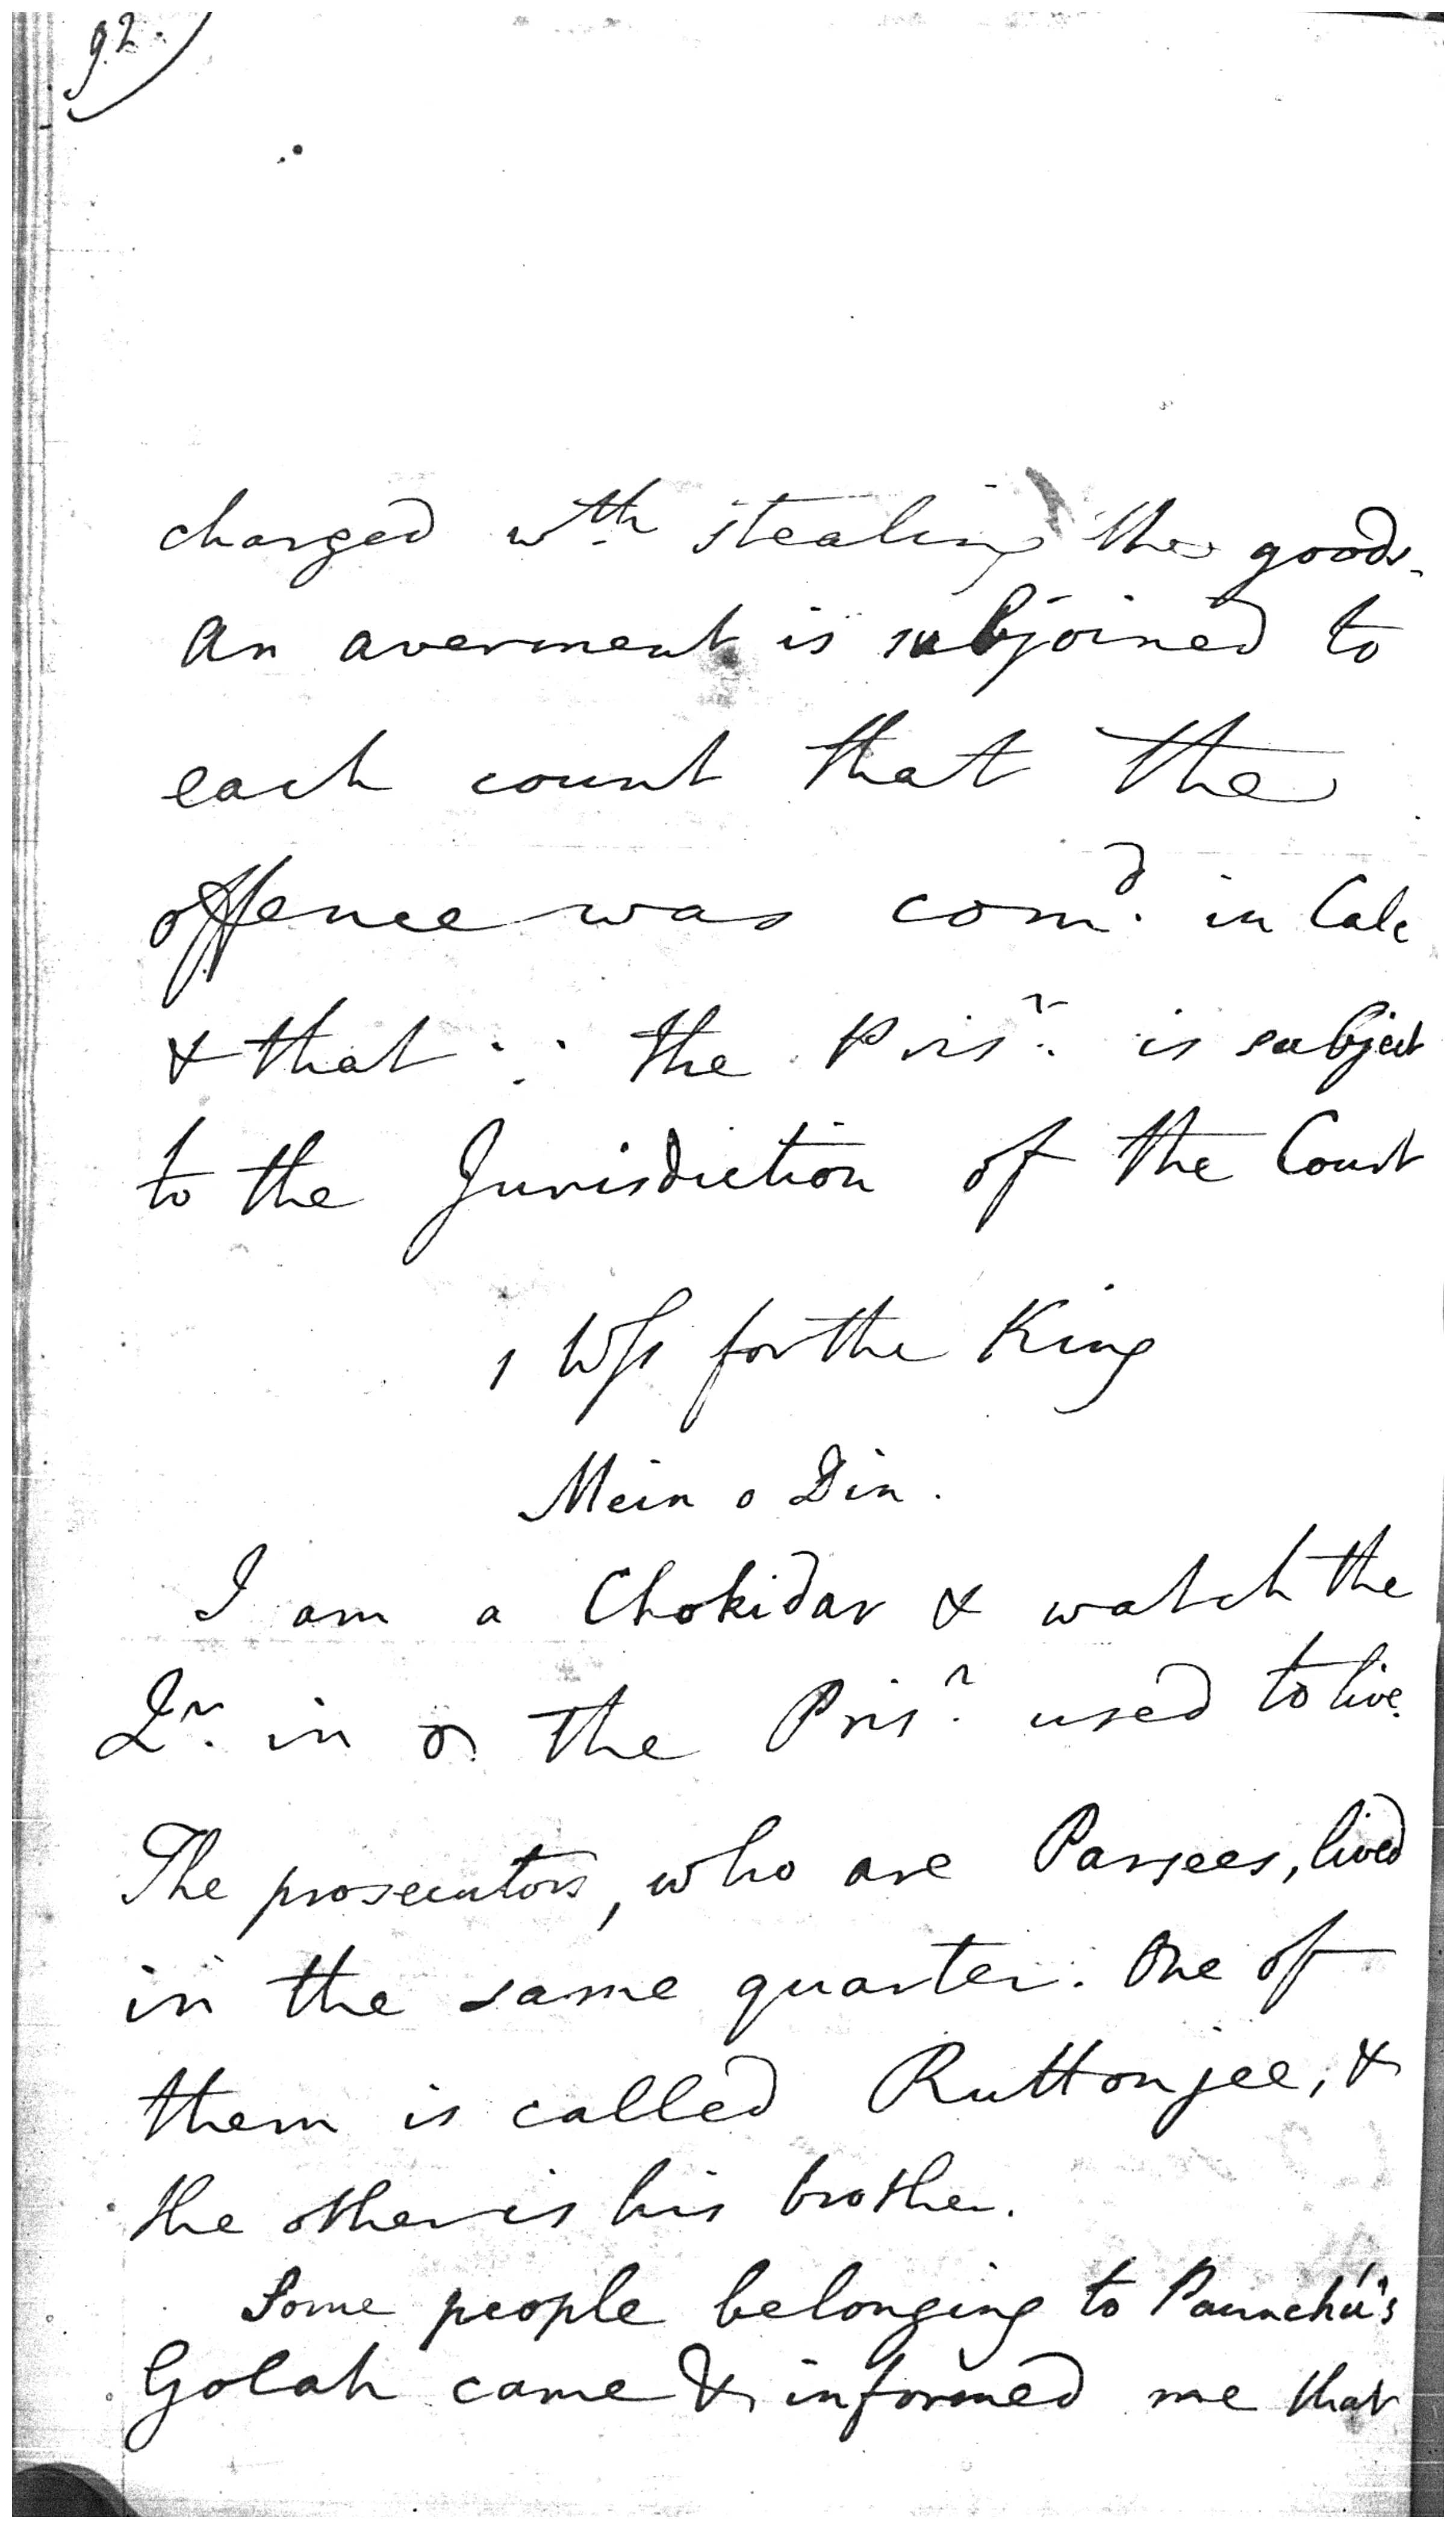 92.
charged wth stealing the goods.
An averment is subjoined to
each count that the
offence was comd. in Calc
& that ∵ the Prisr. is subject
to the Jurisdiction of the Court
1 Wss for the King
Mein o Din.
I am a Chokidar & watch the
Qr. in the Prisr. used to live.
The prosecutors, who are Parsees, lived
in the same quarter. One of
them is called Ruttonjee, &
the other is his brother.
Some people belonging to Paunchú's
Golah came & informed me that